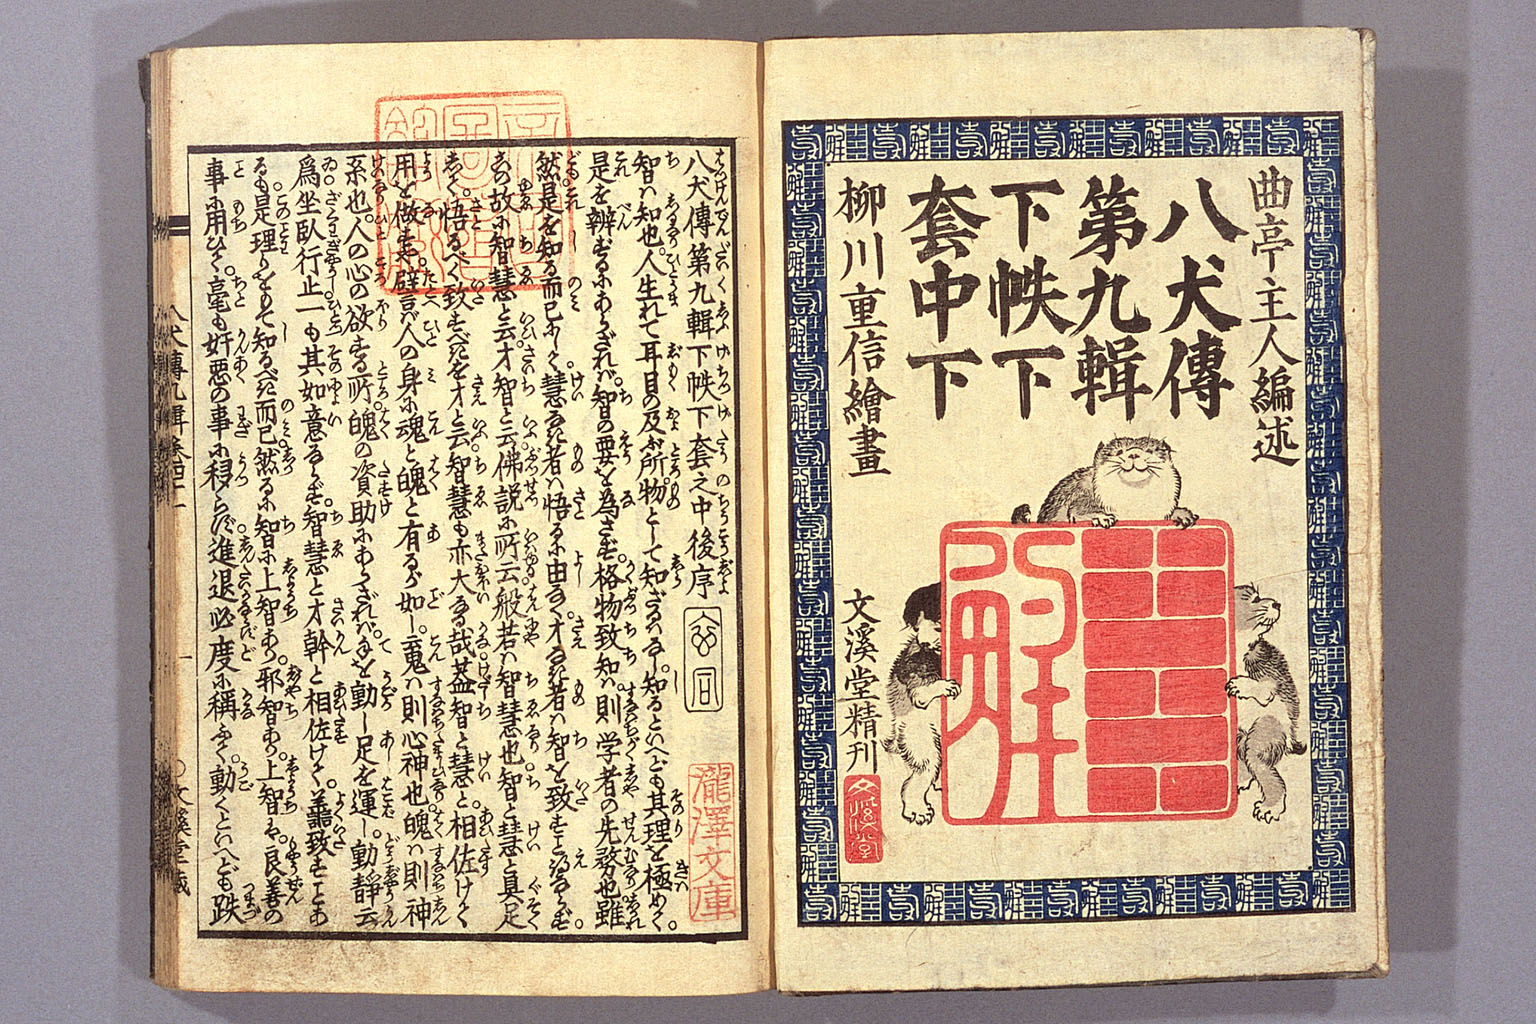 曲亭主人編述
八犬傳
第九輯
下帙下
套中下
柳川重信繪畫
文溪堂精刊
文溪堂
八犬傳第九輯下帙下套之中後序
智ハ知也。人生れて耳目の及ぶ所物として知ざるハなし。知るといへども其理を極めく。
是を辨ずるにあらざれバ。智の要を為さず。格物致知ハ。則学者の先務也。雖
然是を知る而已にく。慧なき者ハ悟るに由なし。才なき者ハ智を致すことなるべからず。
故に智慧と云才智と云。佛説に所云般若ハ智慧也。智と慧と具足
悟るべく。致すべきを才と云。智慧も亦大なる哉。蓋智と慧と。相佐けく
用を做すに。譬言バ人の身に魂と魄と有るが如し。魂ハ則心神也。魄ハ則神
系也。人の心の欲する所。魄の資助にあらざれバ。手を動し足を運し。動静云
爲坐臥行止一も其如意ならず。智慧と才幹と相佐けく。善致すこと
るも是理をもて知るべき而已。然るに智に上智あり。邪智あり。上智ハ良善の
事に用ひく。毫も奸悪の事に移らず。進退必度に稱ふく。動くといへども跌
瀧澤文庫
八犬傳九輯巻四十一
一
○文溪堂藏